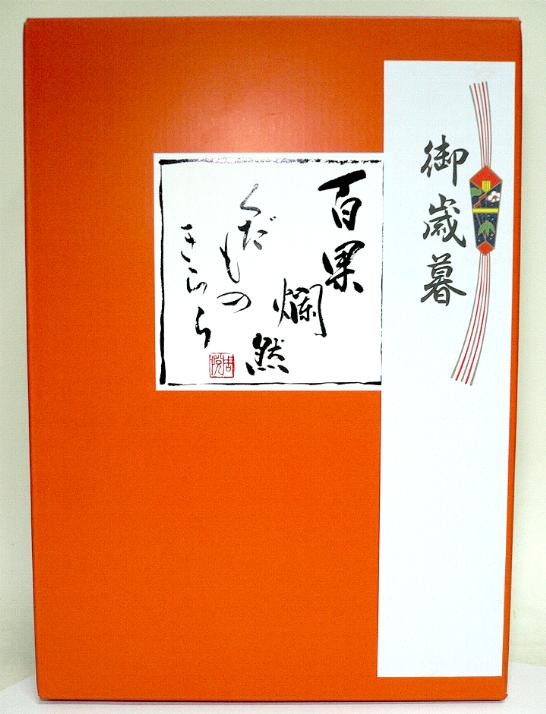 御歳暮
百果
爛然
くだもの
きらら